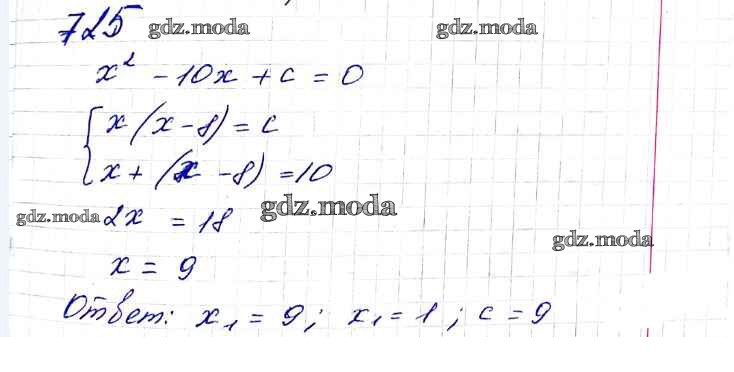 725 gdz.moda gdz.moda
x² - 10x + c = 0
{ x(x-8) = c
x + (x-8) = 10
gdz.moda 2x = 18 gdz.moda gdz.moda
x = 9
Ответ: x₁ = 9; x₁ = 1; c = 9